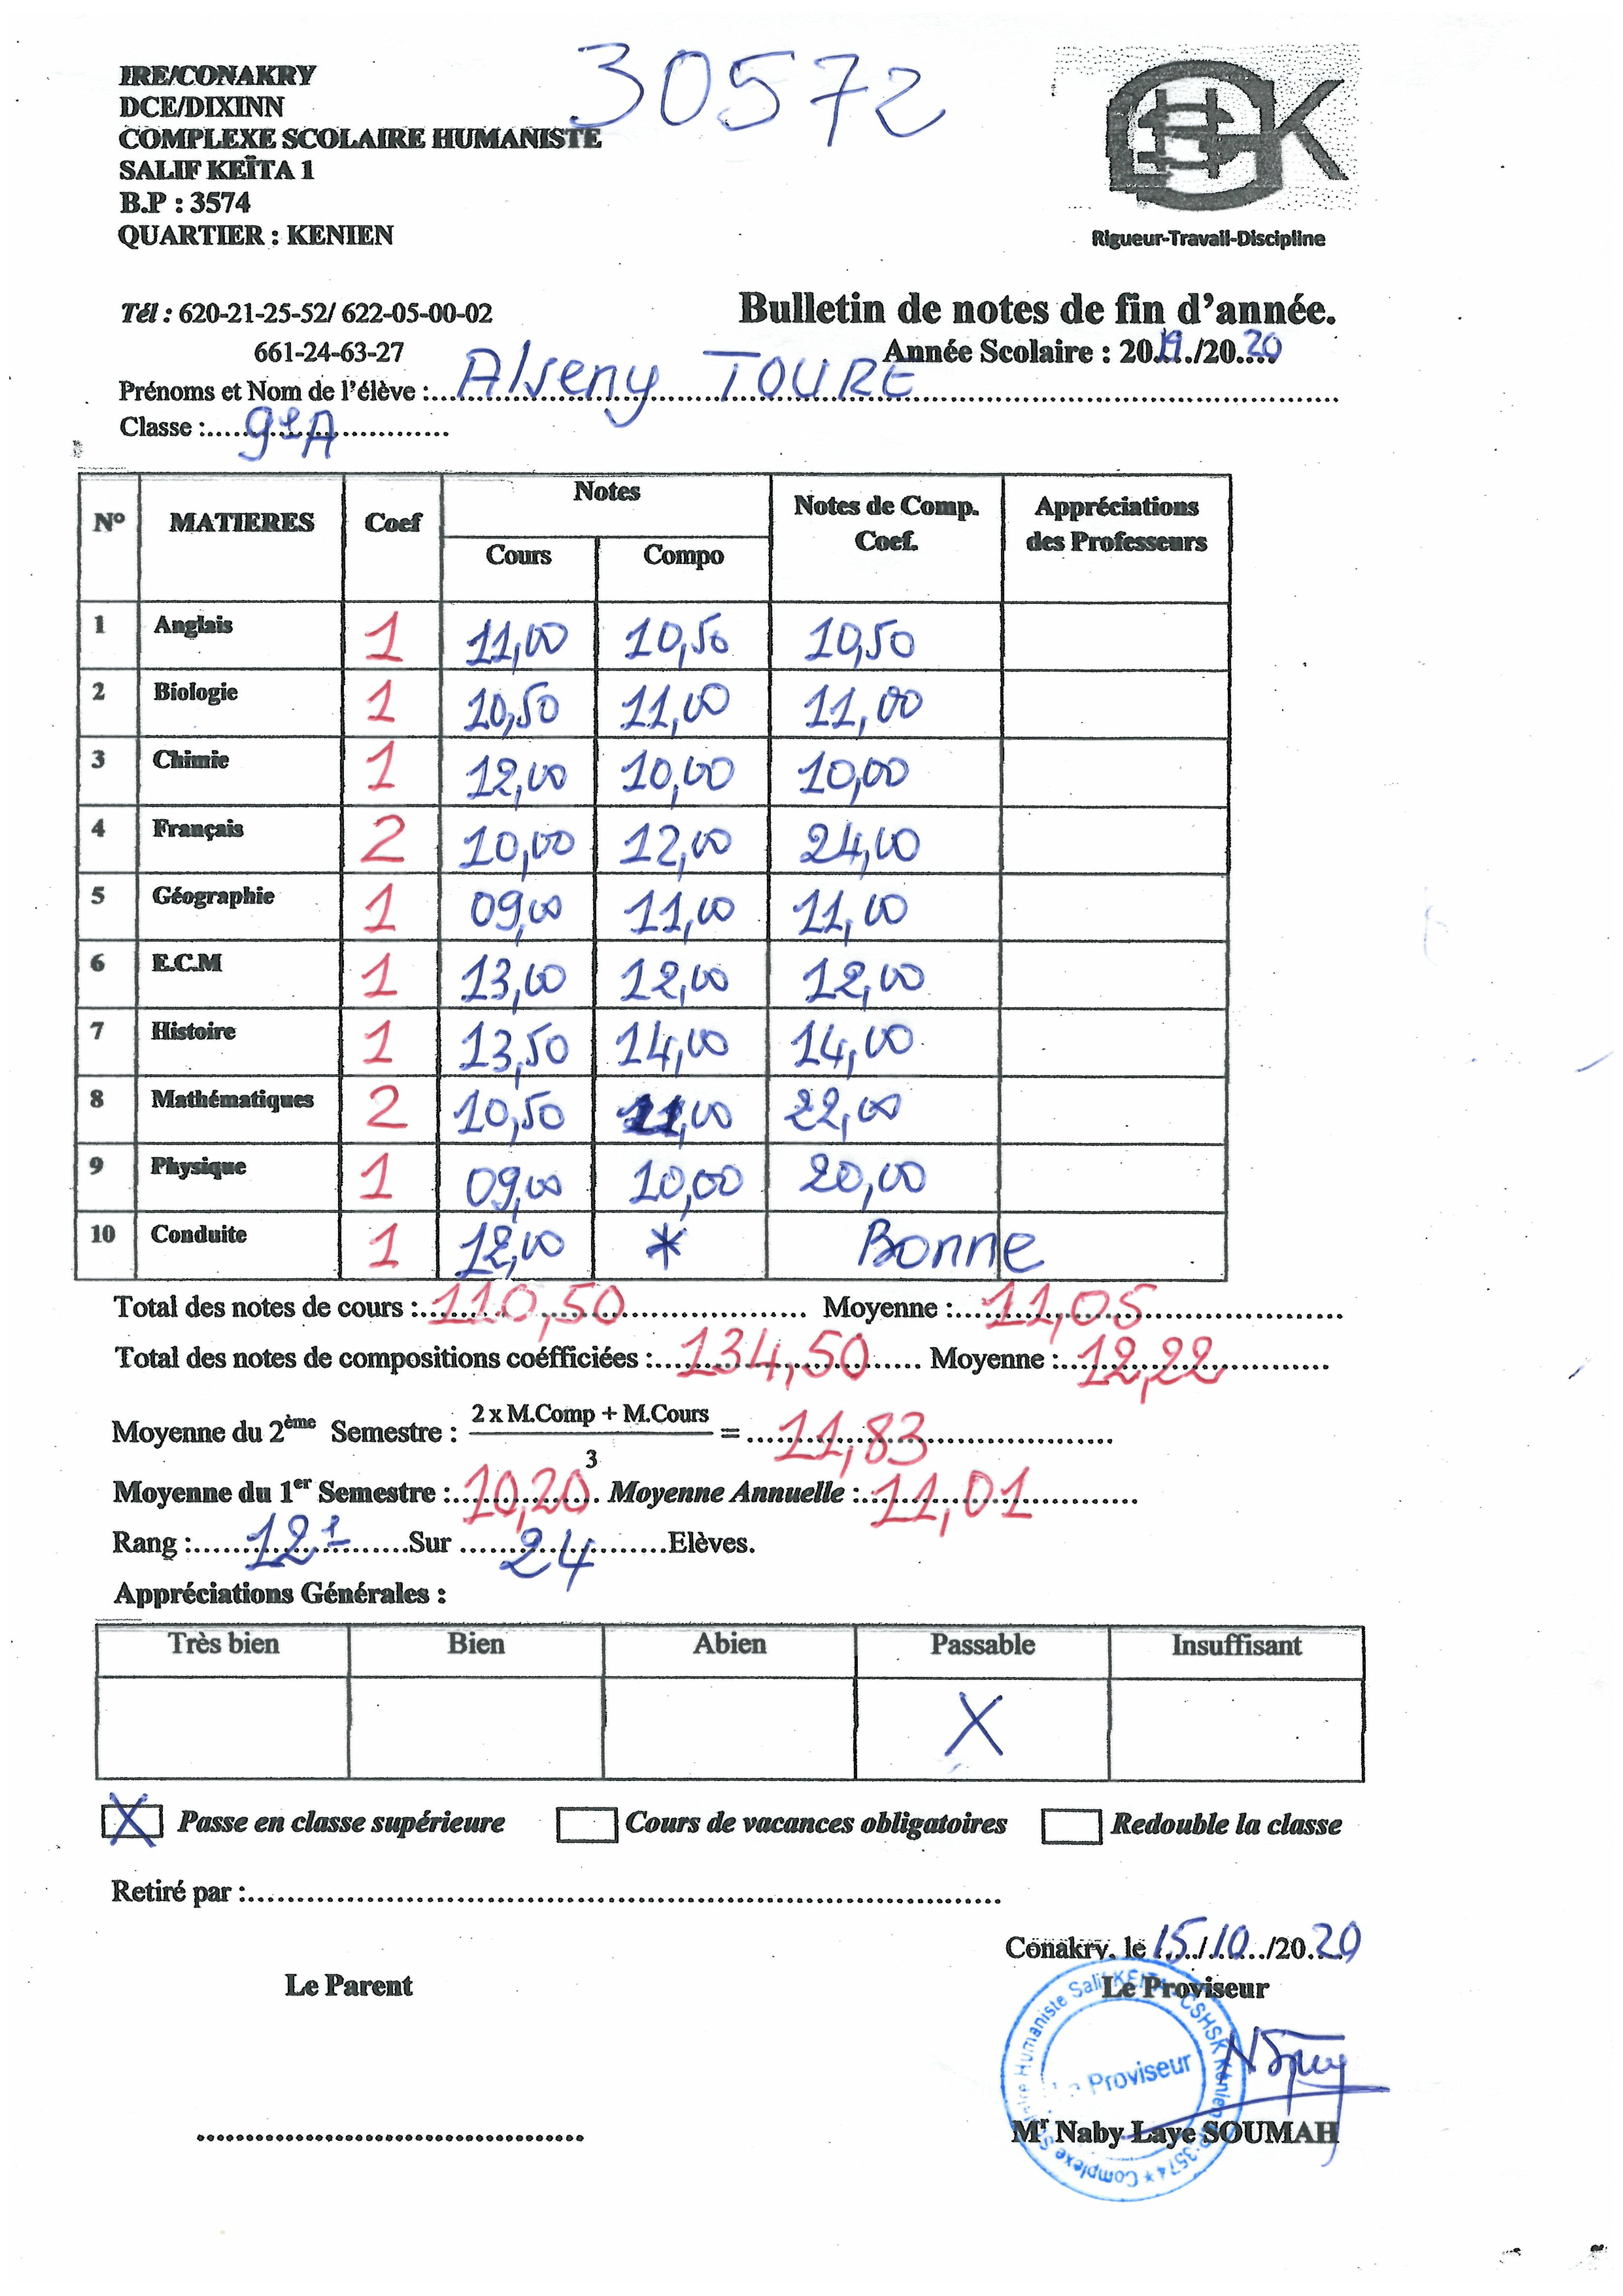 30572
IRE/CONAKRY
DCE/DIXINN
COMPLEXE SCOLAIRE HUMANISTE
SALIF KEÏTA 1
B.P : 3574
QUARTIER : KENIEN
Rigueur-Travail-Discipline
Tél : 620-21-25-52/ 622-05-00-02
661-24-63-27
Bulletin de notes de fin d'année.
Année Scolaire : 2019/2020
Prénoms et Nom de l'élève : Alseny TOURE
Classe : 9e A
N° MATIERES Coef Notes Notes de Comp. Coef. Appréciations des Professeurs
Cours Compo
1 Anglais 1 11,00 10,50 10,50
2 Biologie 1 10,50 11,00 11,00
3 Chimie 1 12,00 10,00 10,00
4 Français 2 10,00 12,00 24,00
5 Géographie 1 09,00 11,00 11,00
6 E.C.M 1 13,00 12,00 12,00
7 Histoire 1 13,50 14,00 14,00
8 Mathématiques 2 10,50 11,00 22,00
9 Physique 1 09,00 10,00 20,00
10 Conduite 1 12,00 * Bonne
Total des notes de cours : 110,50 Moyenne : 11,05
Total des notes de compositions coéfficiées : 134,50 Moyenne : 12,22
Moyenne du 2ème Semestre : 2 x M.Comp + M.Cours / 3 = 11,83
Moyenne du 1er Semestre : 10,20 Moyenne Annuelle : 11,01
Rang : 12e Sur 24 Elèves.
Appréciations Générales :
Très bien Bien Abien Passable Insuffisant
X
X Passe en classe supérieure Cours de vacances obligatoires Redouble la classe
Retiré par :
Conakry, le 15/10/2020
Le Parent Le Proviseur
Complexe Scolaire Humaniste Salif KEITA CSHSK Kénien BP:3574
Le Proviseur
Mr Naby Laye SOUMAH